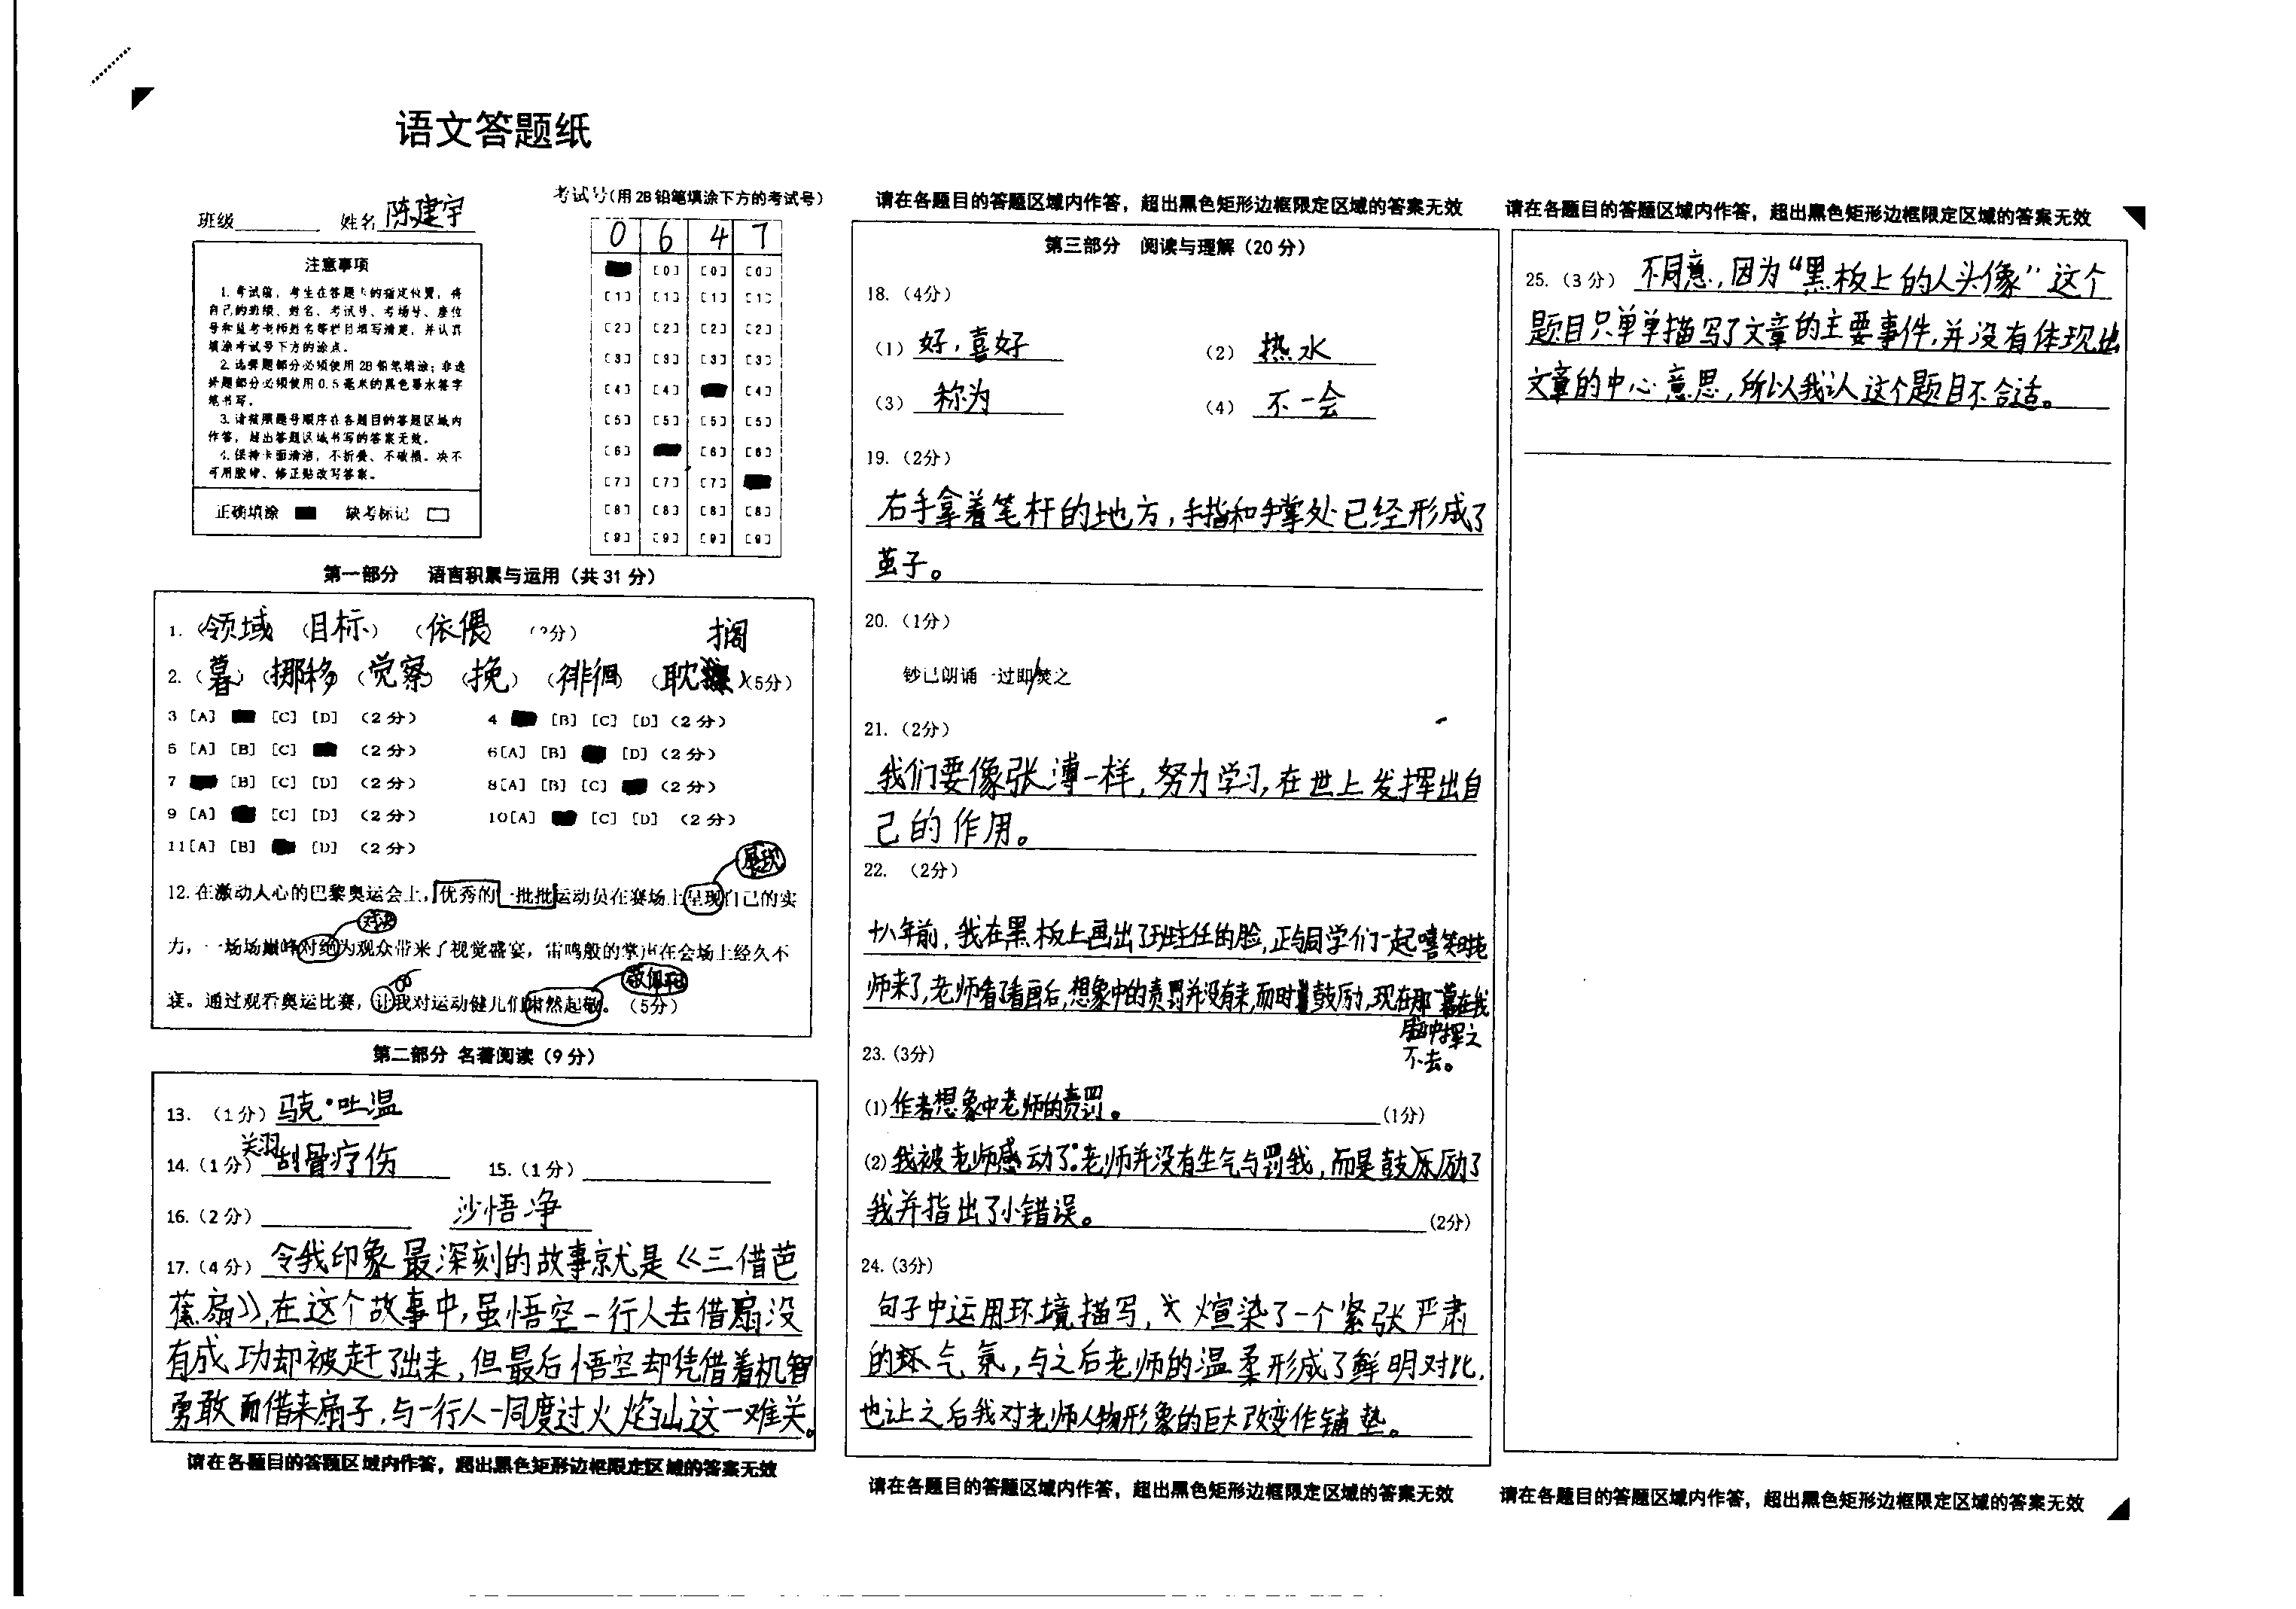 语文答题纸
班级 姓名 陈建宇
考试号(用2B铅笔填涂下方的考试号)
0 6 4 7
注意事项
1. 考试前，考生在答题卡的指定位置，将
自己的班级、姓名、考试号、考场号、座位
号和监考老师姓名等栏目填写清楚，并认真
填涂考试号下方的涂点。
2. 选择题部分必须使用2B铅笔填涂；非选
择题部分必须使用0.5毫米的黑色墨水签字
笔书写。
3. 请按照题号顺序在各题目的答题区域内
作答，超出答题区域书写的答案无效。
4. 保持卡面清洁，不折叠、不破损。决不
可用胶带、修正贴改写答案。
正确填涂 缺考标记
[0] [0] [0]
[1] [1] [1] [1]
[2] [2] [2] [2]
[3] [3] [3] [3]
[4] [4] [4]
[5] [5] [5] [5]
[6] [6] [6]
[7] [7] [7]
[8] [8] [8] [8]
[9] [9] [9] [9]
第一部分 语言积累与运用（共31分）
1. (领域) (目标) (依偎)
搁
2. (暮) (挪移) (觉察) (挽) (徘徊) (耽 )(5分)
3 [A] [C] [D] （2分） 4 [B] [C] [D]（2分）
5 [A] [B] [C] （2分） 6[A] [B] [D]（2分）
7 [B] [C] [D] （2分） 8[A] [B] [C] （2分）
9 [A] [C] [D] （2分） 10[A] [C] [D] （2分）
11[A] [B] [D] （2分）
展现
12. 在激动人心的巴黎奥运会上，优秀的一批批运动员在赛场上呈现自己的实
对决
力，一场场巅峰对绝为观众带来了视觉盛宴，雷鸣般的掌声在会场上经久不
敬佩不已
衰。通过观看奥运比赛，让我对运动健儿们肃然起敬。（5分）
第二部分 名著阅读（9分）
13. （1分）骑克·吐温
14.（1分）关羽刮骨疗伤 15.（1分）
16.（2分） 沙悟净
17.（4分）令我印象最深刻的故事就是《三借芭
蕉扇》，在这个故事中，虽悟空一行人去借扇没
有成功却被赶了出来，但最后悟空却凭借着机智
勇敢而借来扇子，与一行人一同度过火焰山这一难关。
请在各题目的答题区域内作答，超出黑色矩形边框限定区域的答案无效
请在各题目的答题区域内作答，超出黑色矩形边框限定区域的答案无效
第三部分 阅读与理解（20分）
18.（4分）
（1）好，喜好 （2）热水
（3）称为 （4）不一会
19.（2分）
右手拿着笔杆的地方，手指和手掌处已经形成了
茧子。
20.（1分）
钞已朗诵一过即/焚之
21.（2分）
我们要像张溥一样，努力学习，在世上发挥出自
己的作用。
22. （2分）
十八年前，我在黑板上画出了班主任的脸，正与同学们一起嘻笑时老
师来了，老师看了看画后，想象中的责罚并没有来，而时鼓励，现在那一幕在我
脑中挥之
不去。
23.（3分）
(1)作者想象中老师的责罚。(1分)
(2)我被老师感动了。老师并没有生气与罚我，而是鼓励了
我并指出了小错误。(2分)
24.（3分）
句子中运用环境描写，渲染了一个紧张严肃
的 气氛，与之后老师的温柔形成了鲜明对比，
也让之后我对老师人物形象的巨大改变作铺垫。
请在各题目的答题区域内作答，超出黑色矩形边框限定区域的答案无效
请在各题目的答题区域内作答，超出黑色矩形边框限定区域的答案无效
25.（3分）不同意，因为“黑板上的人头像”这个
题目只单单描写了文章的主要事件，并没有体现出
文章的中心意思，所以我认这个题目不合适。
请在各题目的答题区域内作答，超出黑色矩形边框限定区域的答案无效